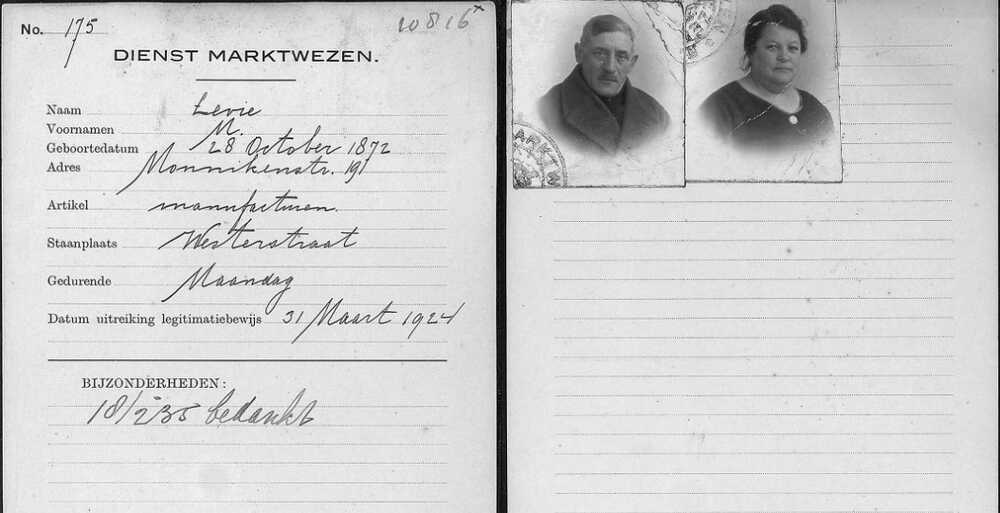 No. 175
10816x
DIENST MARKTWEZEN.
Naam Levie
Voornamen M.
Geboortedatum 28 October 1872
Adres Monnikenstr. 19I
Artikel manufacturen.
Staanplaats Westerstraat
Gedurende Maandag
Datum uitreiking legitimatiebewijs 31 Maart 1924
BIJZONDERHEDEN:
bedankt
MARKTW